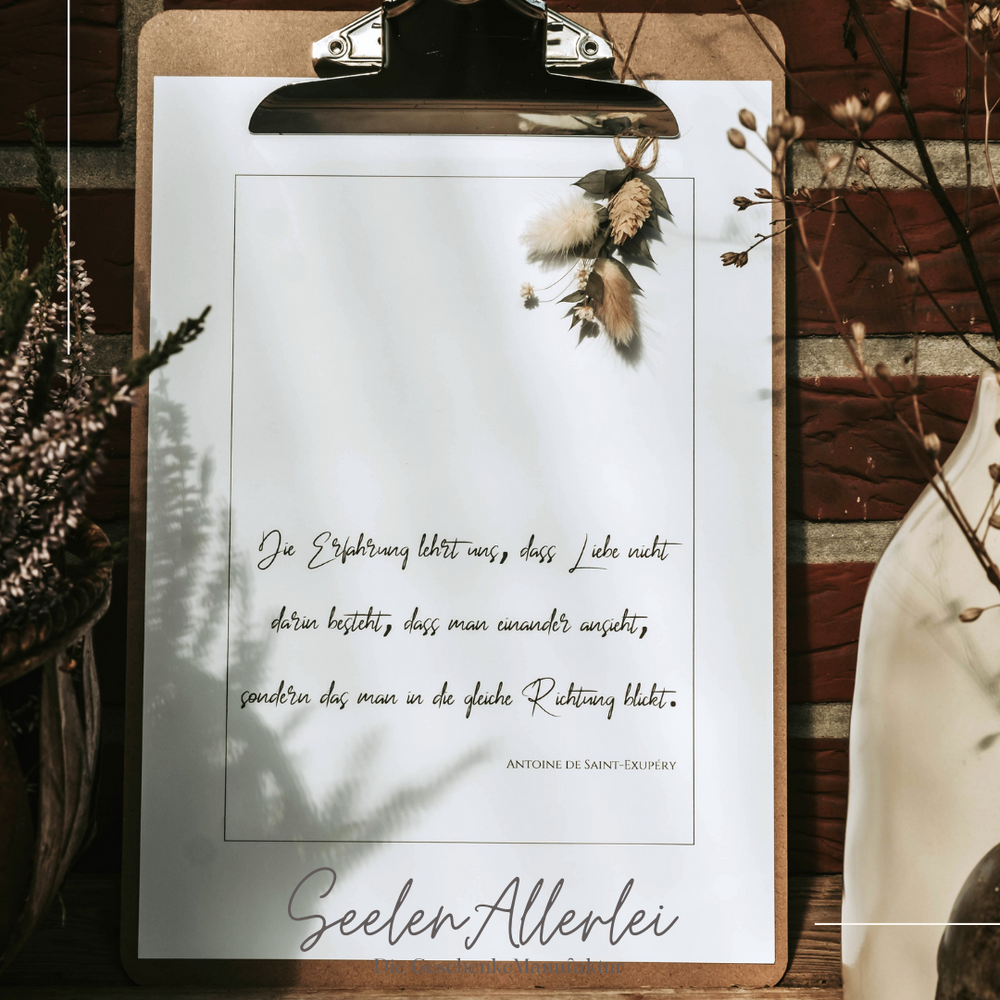 Die Erfahrung lehrt uns, dass Liebe nicht
darin besteht, dass man einander ansieht,
sondern das man in die gleiche Richtung blickt.
Antoine de Saint-Exupéry
SeelenAllerlei
Die GeschenkeManufaktur